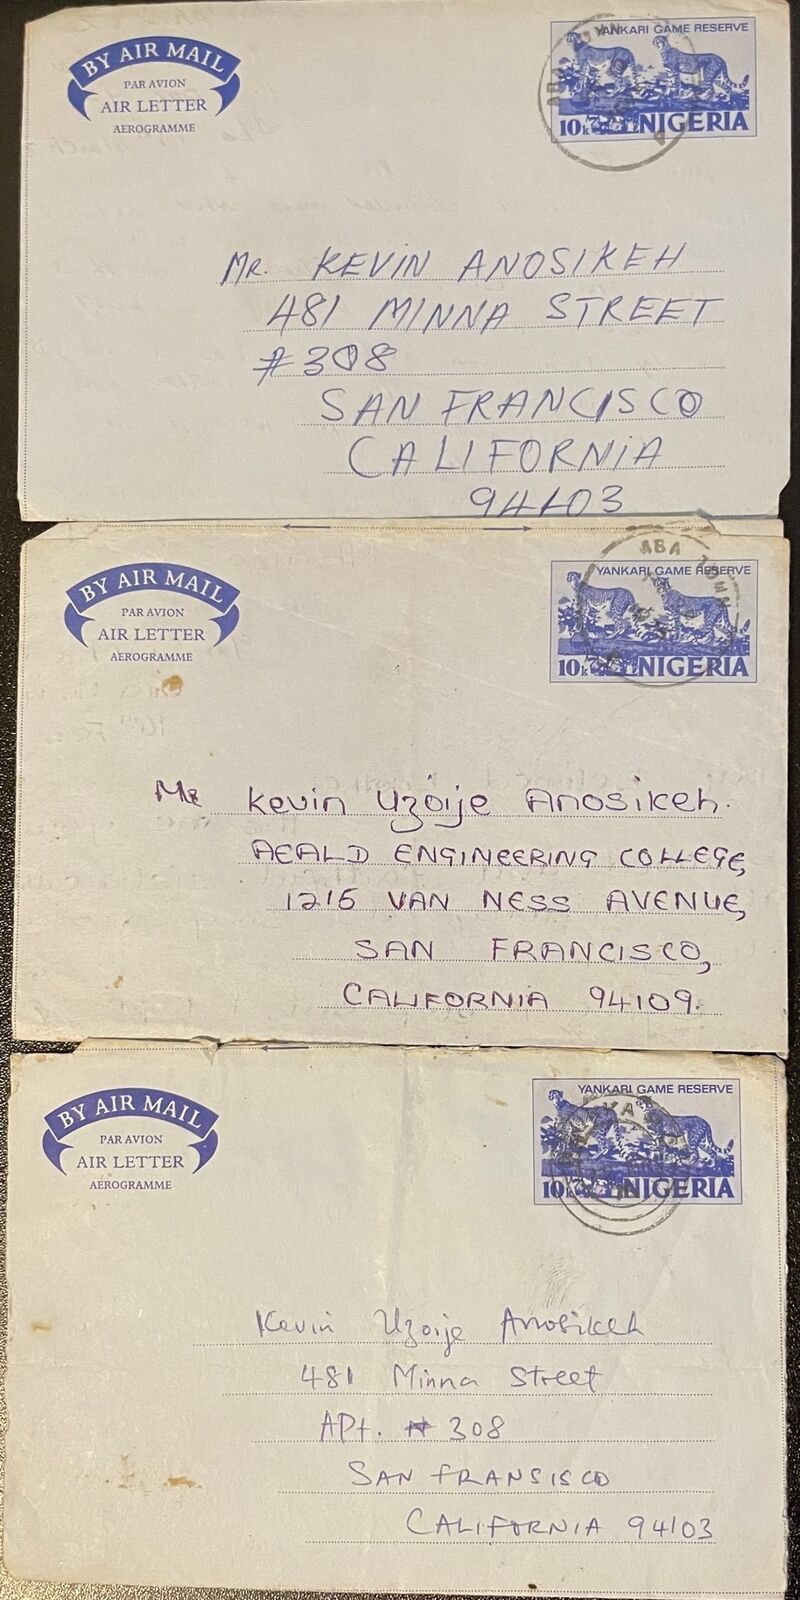 BY AIR MAIL
PAR AVION
AIR LETTER
AEROGRAMME
YANKARI GAME RESERVE
10k NIGERIA
MR. KEVIN ANOSIKEH
481 MINNA STREET
#308
SAN FRANCISCO
CALIFORNIA
94103
BY AIR MAIL
PAR AVION
AIR LETTER
AEROGRAMME
ABA TOWN
YANKARI GAME RESERVE
10k NIGERIA
MR Kevin Uzoije Anosikeh.
AEALD ENGINEERING COLLEGE,
1215 VAN NESS AVENUE,
SAN FRANCISCO,
CALIFORNIA 94109.
BY AIR MAIL
PAR AVION
AIR LETTER
AEROGRAMME
YANKARI GAME RESERVE
10k NIGERIA
Kevin Uzoije Anosikeh
481 Minna Street
APt. # 308
SAN FRANSISCO
CALIFORNIA 94103